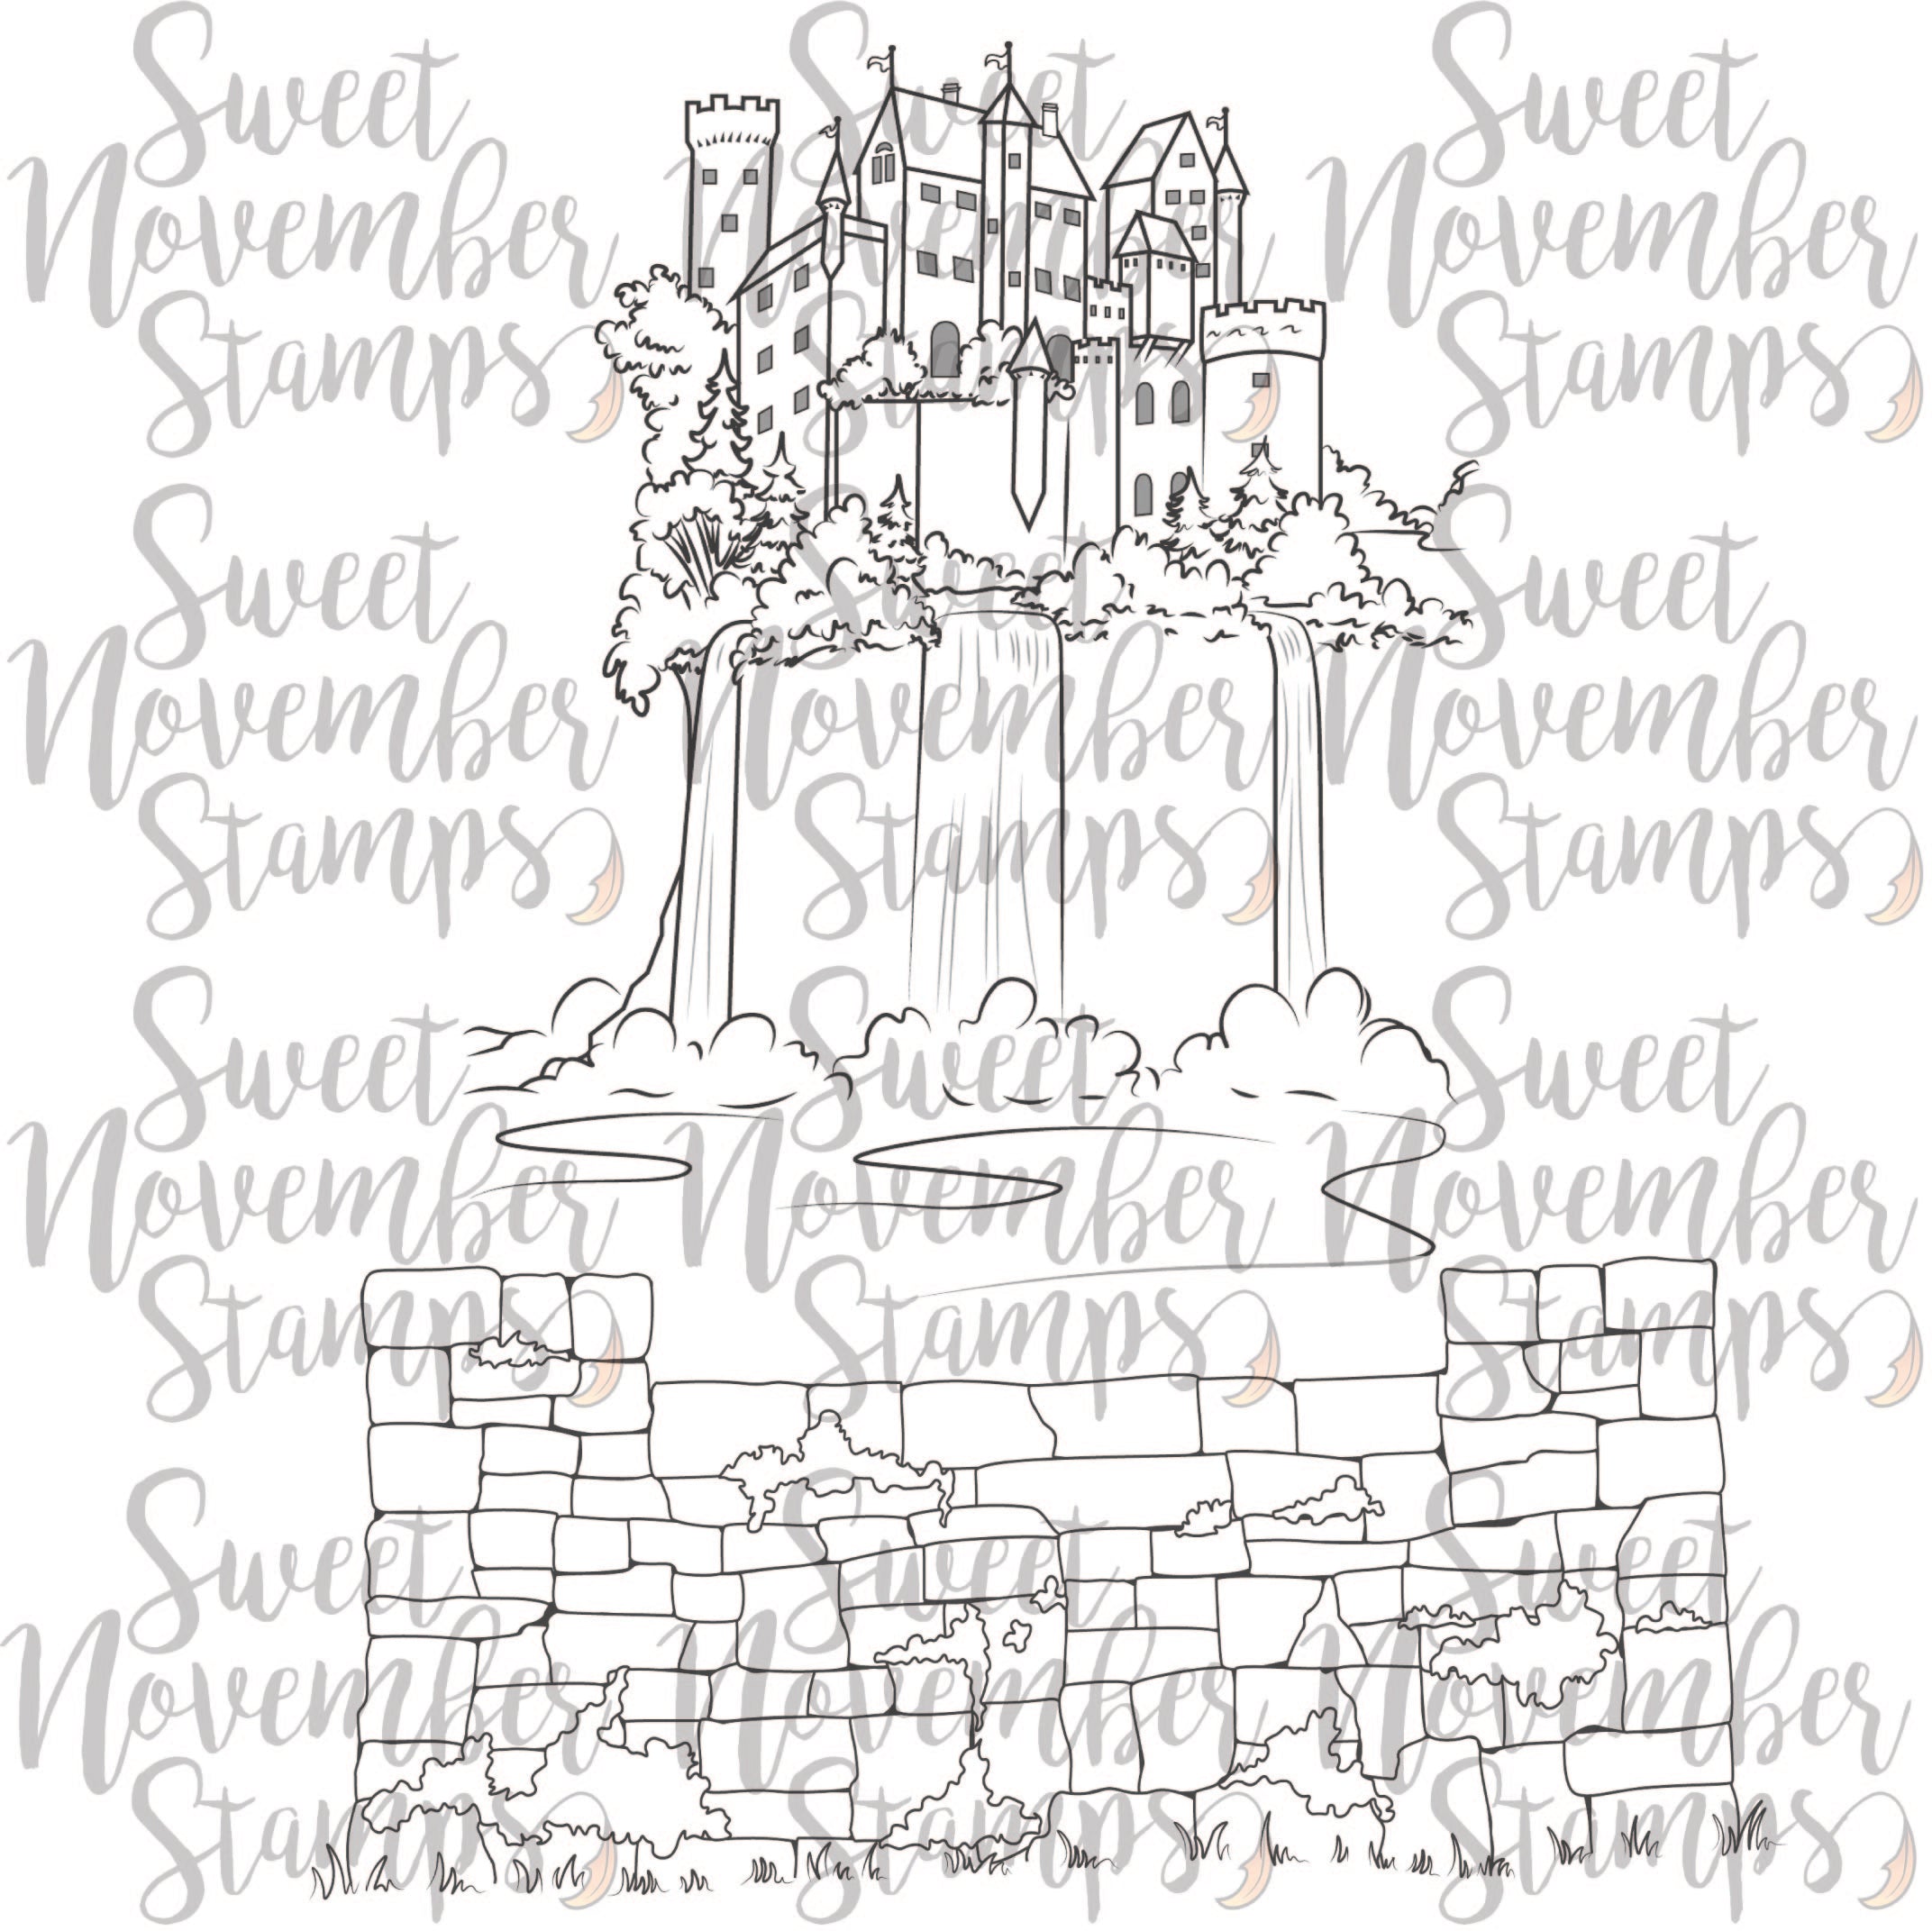 Sweet Sweet Sweet
November November November
Stamps Stamps Stamps
Sweet Sweet Sweet
November November November
Stamps Stamps Stamps
Sweet Sweet Sweet
November November November
Stamps Stamps Stamps
Sweet Sweet Sweet
November November November
Stamps Stamps Stamps